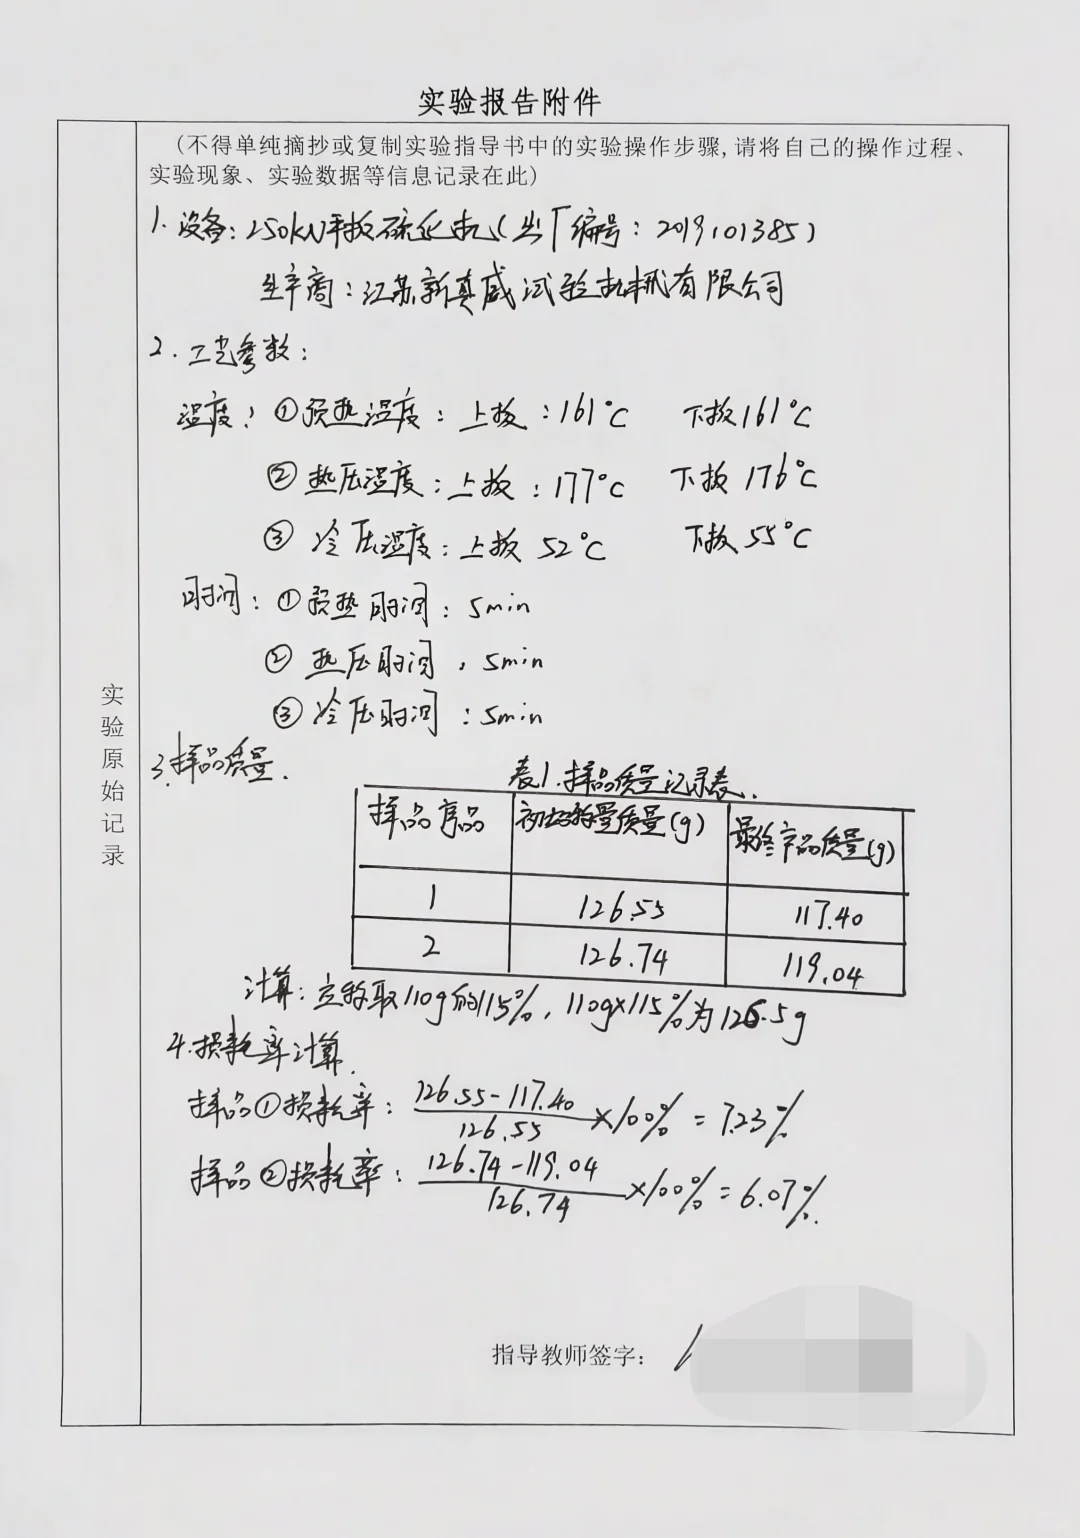 实验报告附件
(不得单纯摘抄或复制实验指导书中的实验操作步骤,请将自己的操作过程、
实验现象、实验数据等信息记录在此)
1. 设备: 250kN平板硫化机(出厂编号: 2019101385)
生产商: 江苏新真威试验机械有限公司
2. 工艺参数:
温度: ①预热温度: 上板: 161℃ 下板161℃
②热压温度: 上板: 177℃ 下板 176℃
③ 冷压温度: 上板 52℃ 下板 55℃
时间: ①预热时间: 5min
② 热压时间: 5min
③ 冷压时间: 5min
实验原始记录
3. 样品质量.
表1. 样品质量记录表.
样品序品 初始称量质量(g) 最终产品质量(g)
1 126.55 117.40
2 126.74 119.04
计算: 应称取110g的115%, 110g×115%为126.5g
4. 损耗率计算.
样品①损耗率: (126.55-117.40)/126.55 ×100% = 7.23%
样品②损耗率: (126.74-119.04)/126.74 ×100% = 6.07%.
指导教师签字: